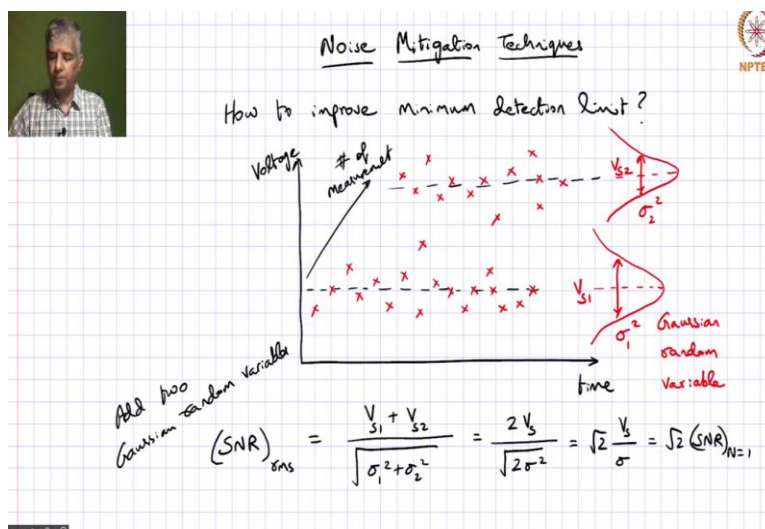 Noise Mitigation Techniques
NPTE
How to improve minimum detection limit?
Voltage
# of
measurement
V_S2
σ_2^2
V_S1
σ_1^2
Gaussian
random
variable
time
Add two
Gaussian random variable
(SNR)_rms = (V_S1 + V_S2) / √(σ_1^2 + σ_2^2) = 2 V_S / √(2σ^2) = √2 V_S / σ = √2 (SNR)_N=1